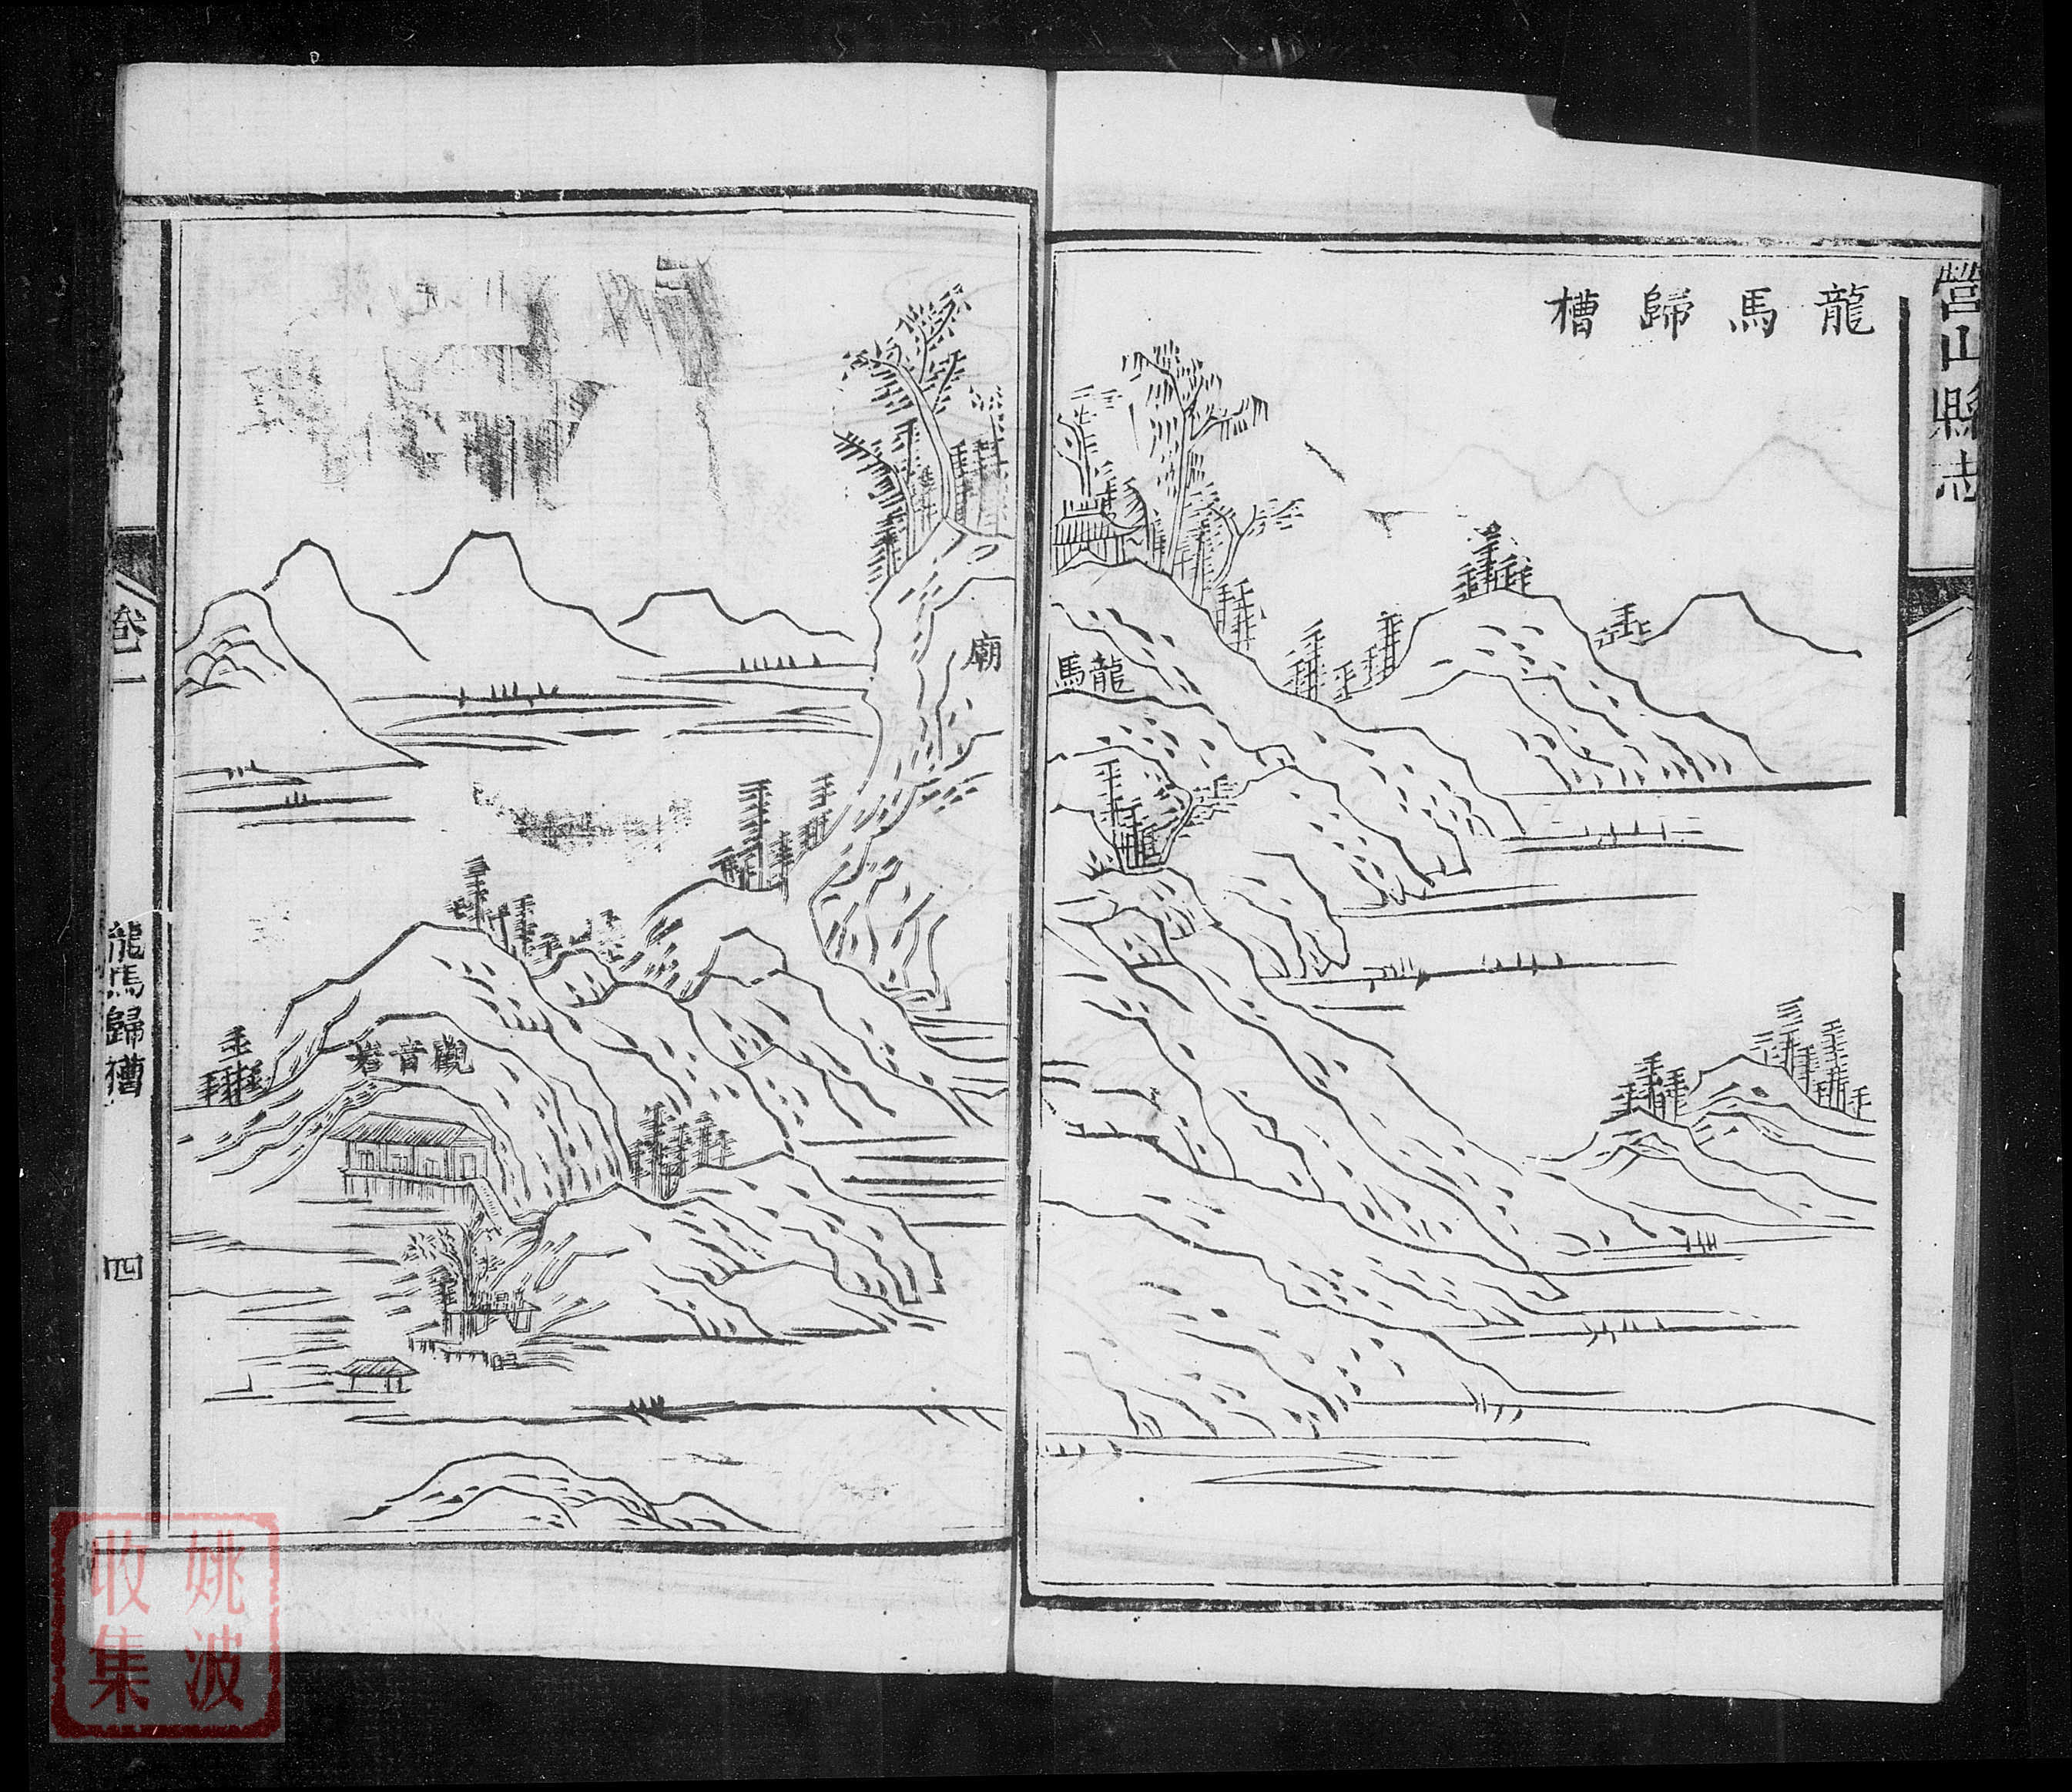 營山縣志
龍馬歸槽
龍馬
廟
觀音岩
卷一
龍馬歸槽
四
姚波
收集